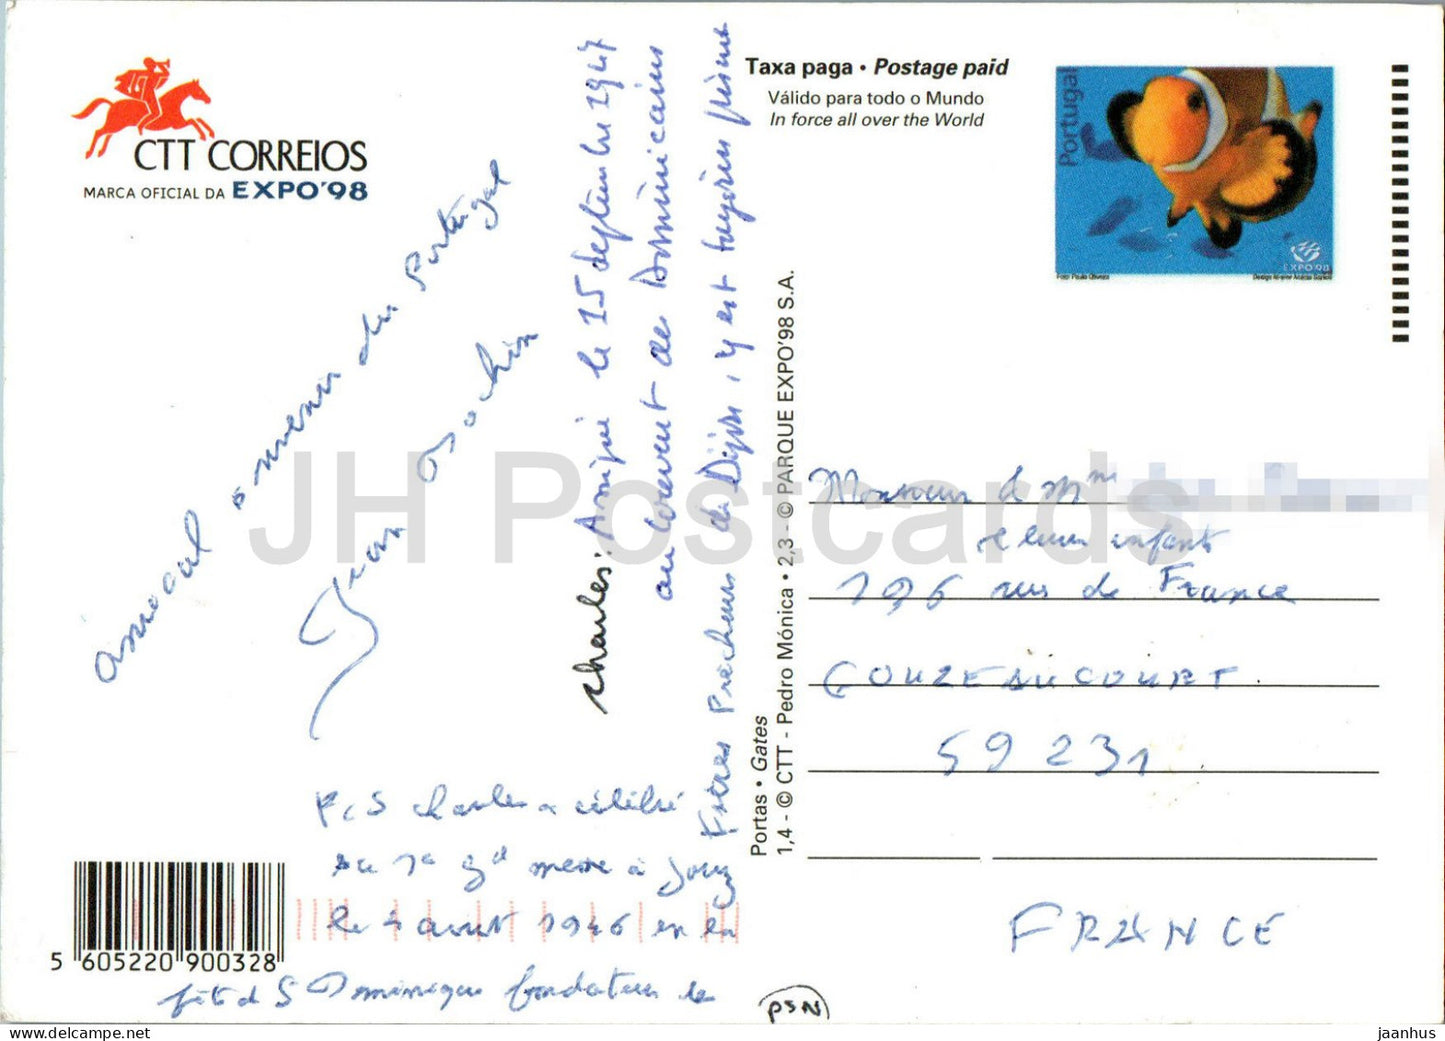 CTT CORREIOS
MARCA OFICIAL DA EXPO'98
Taxa paga • Postage paid
Válido para todo o Mundo
In force all over the World
Portugal
EXPO'98
amical souvenir du Portugal
Jean
Charles. Amipié le 15 septembre 1947
au couvent des Dominicains
Frères Prêcheurs de Dijon, y est toujours
P.S Charles a célébré
sa 1e gd messe à Jouy
le 4 aout 1946 en la
fêt d S Dominique fondateur le
Portas • Gates
1,4 - © CTT - Pedro Mónica • 2,3 - © PARQUE EXPO'98 S.A.
Monsieur & Mme
& leurs enfants
196 rue de France
GOUZEAUCOURT
59 231
FRANCE
5 605220 900328
PSN
JH Postcards
jaanhus